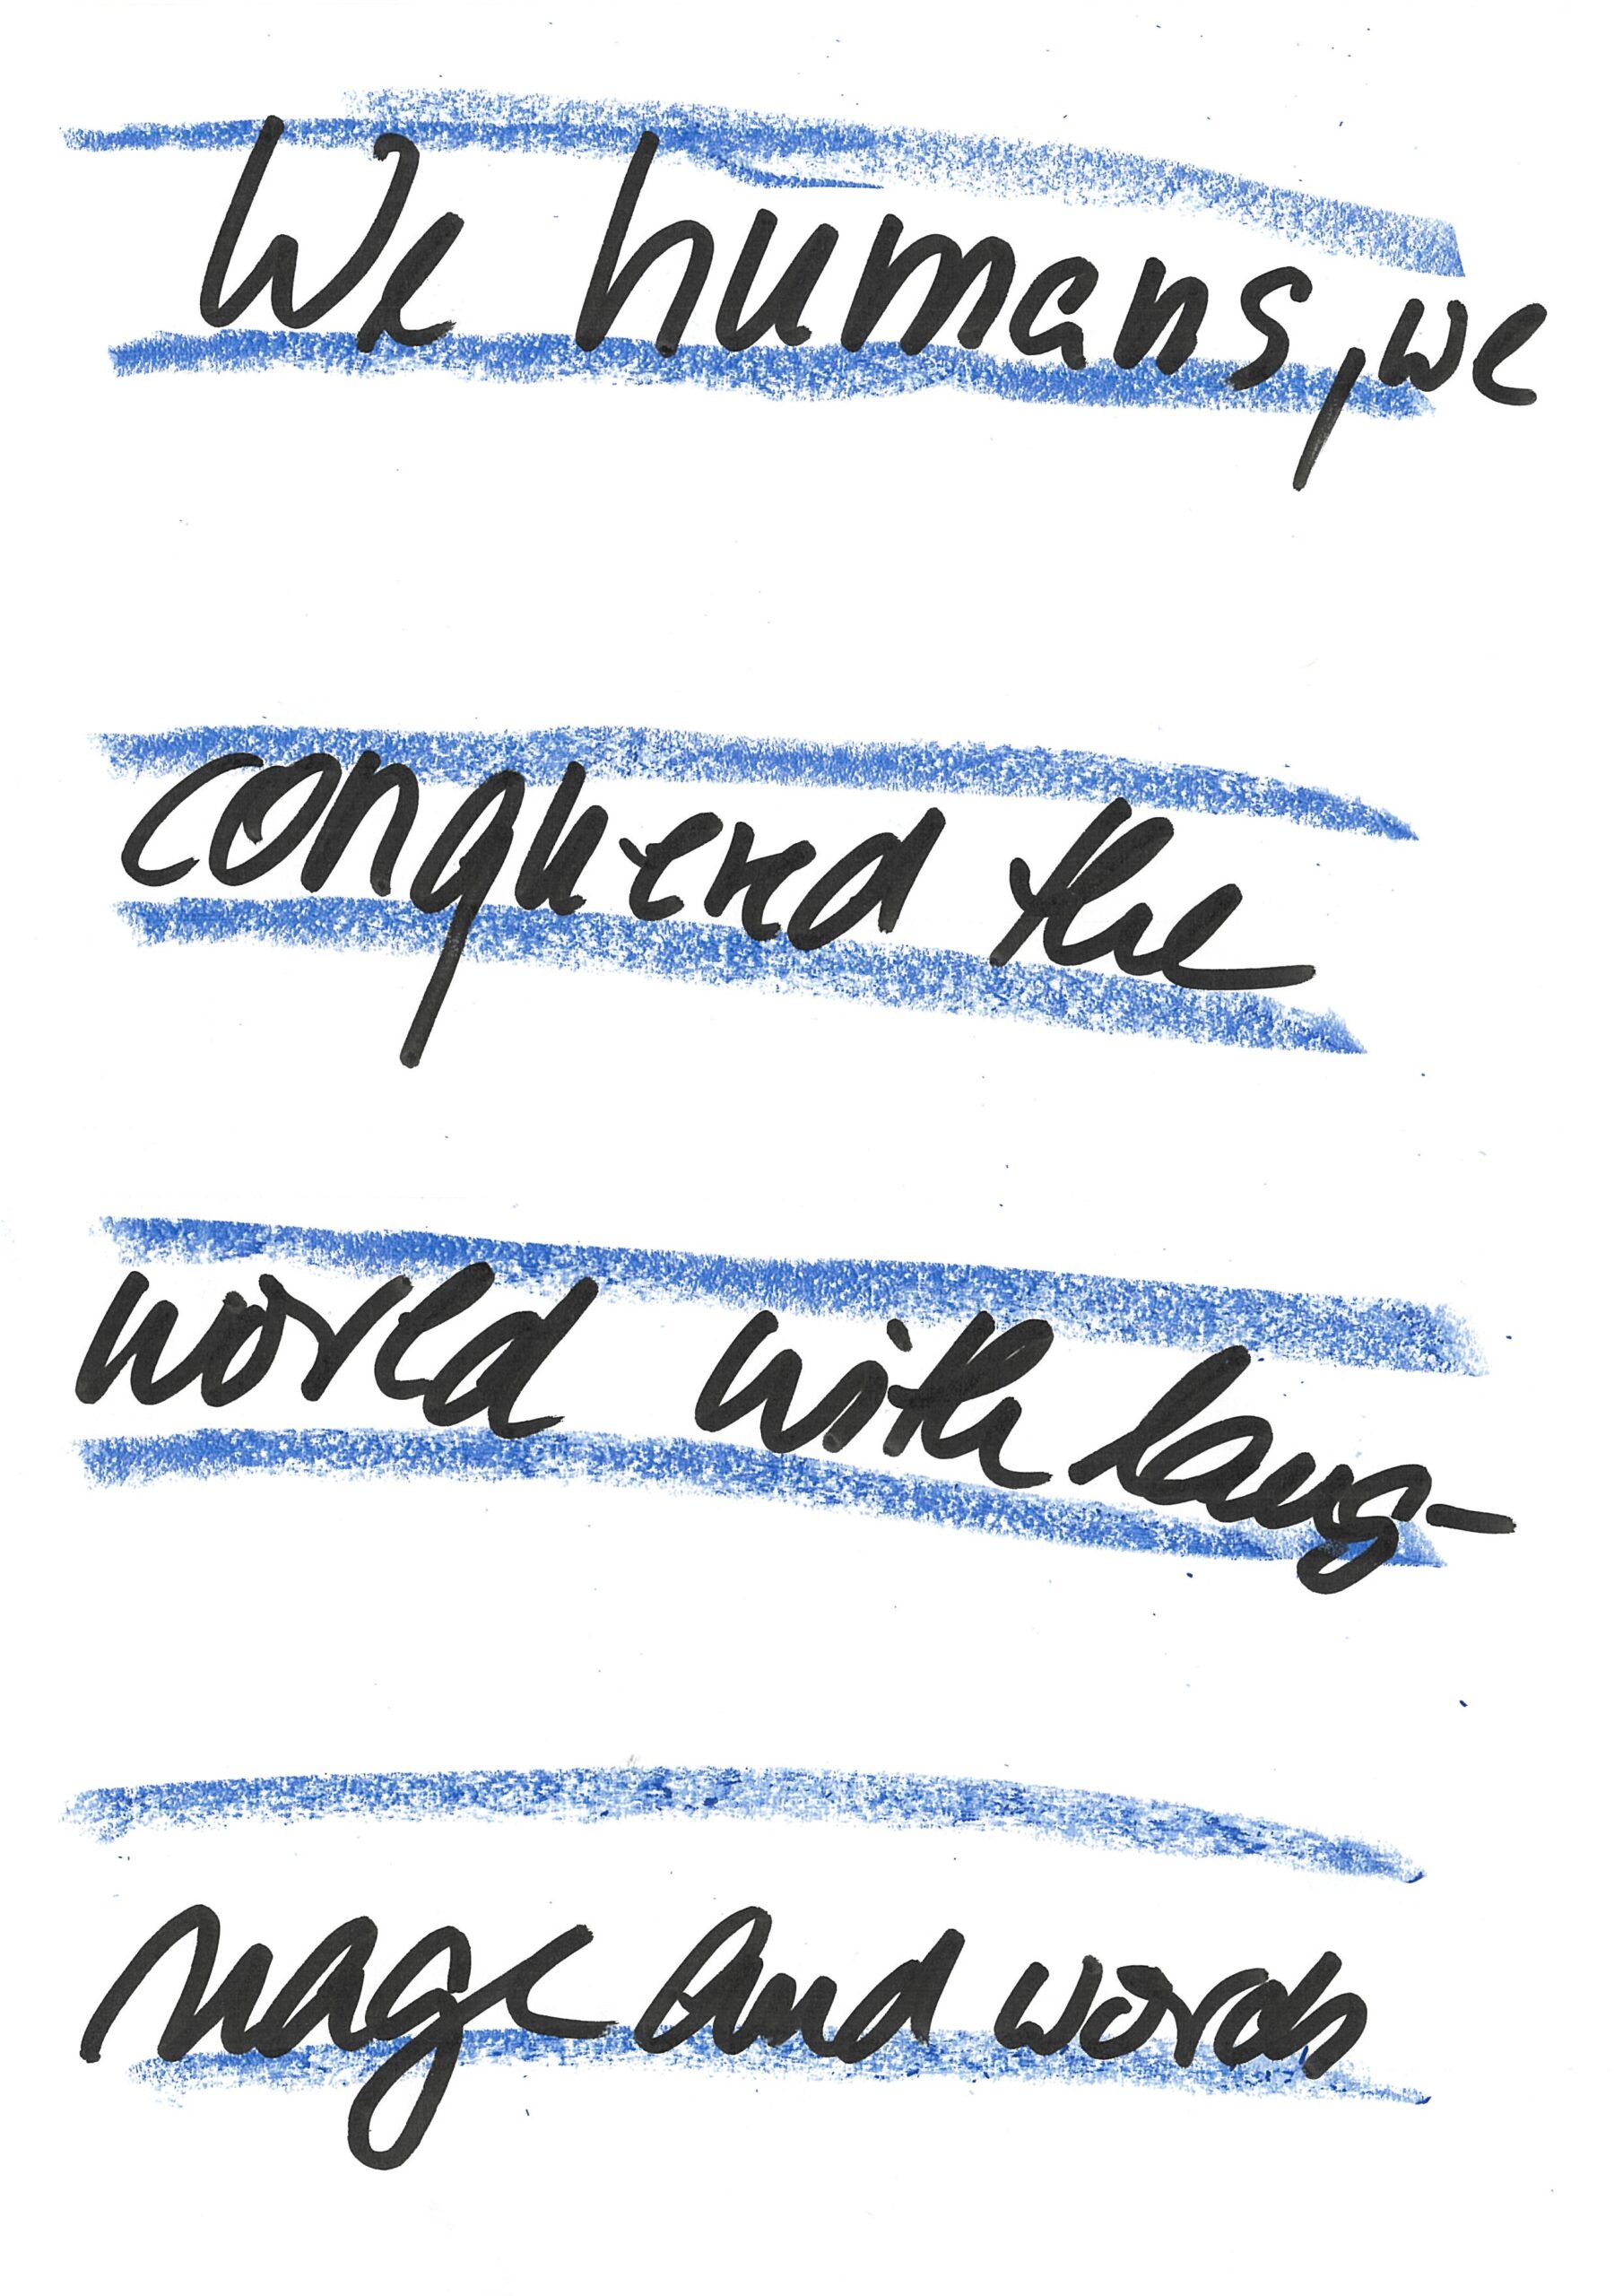 We humans, we
conquered the
world with lang-
uage and words